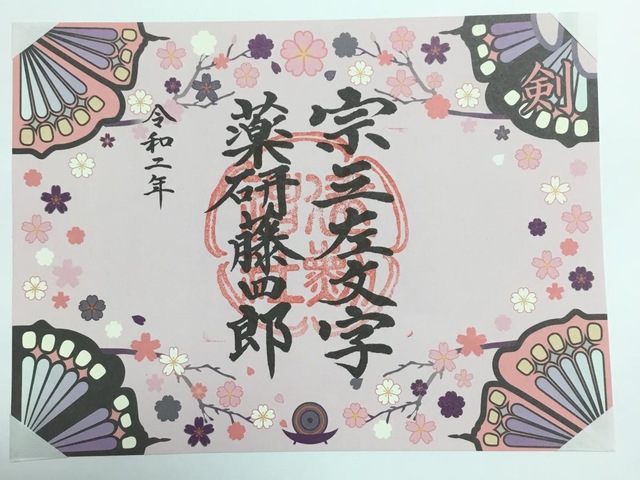 剣
宗三左文字
薬研藤四郎
令和二年